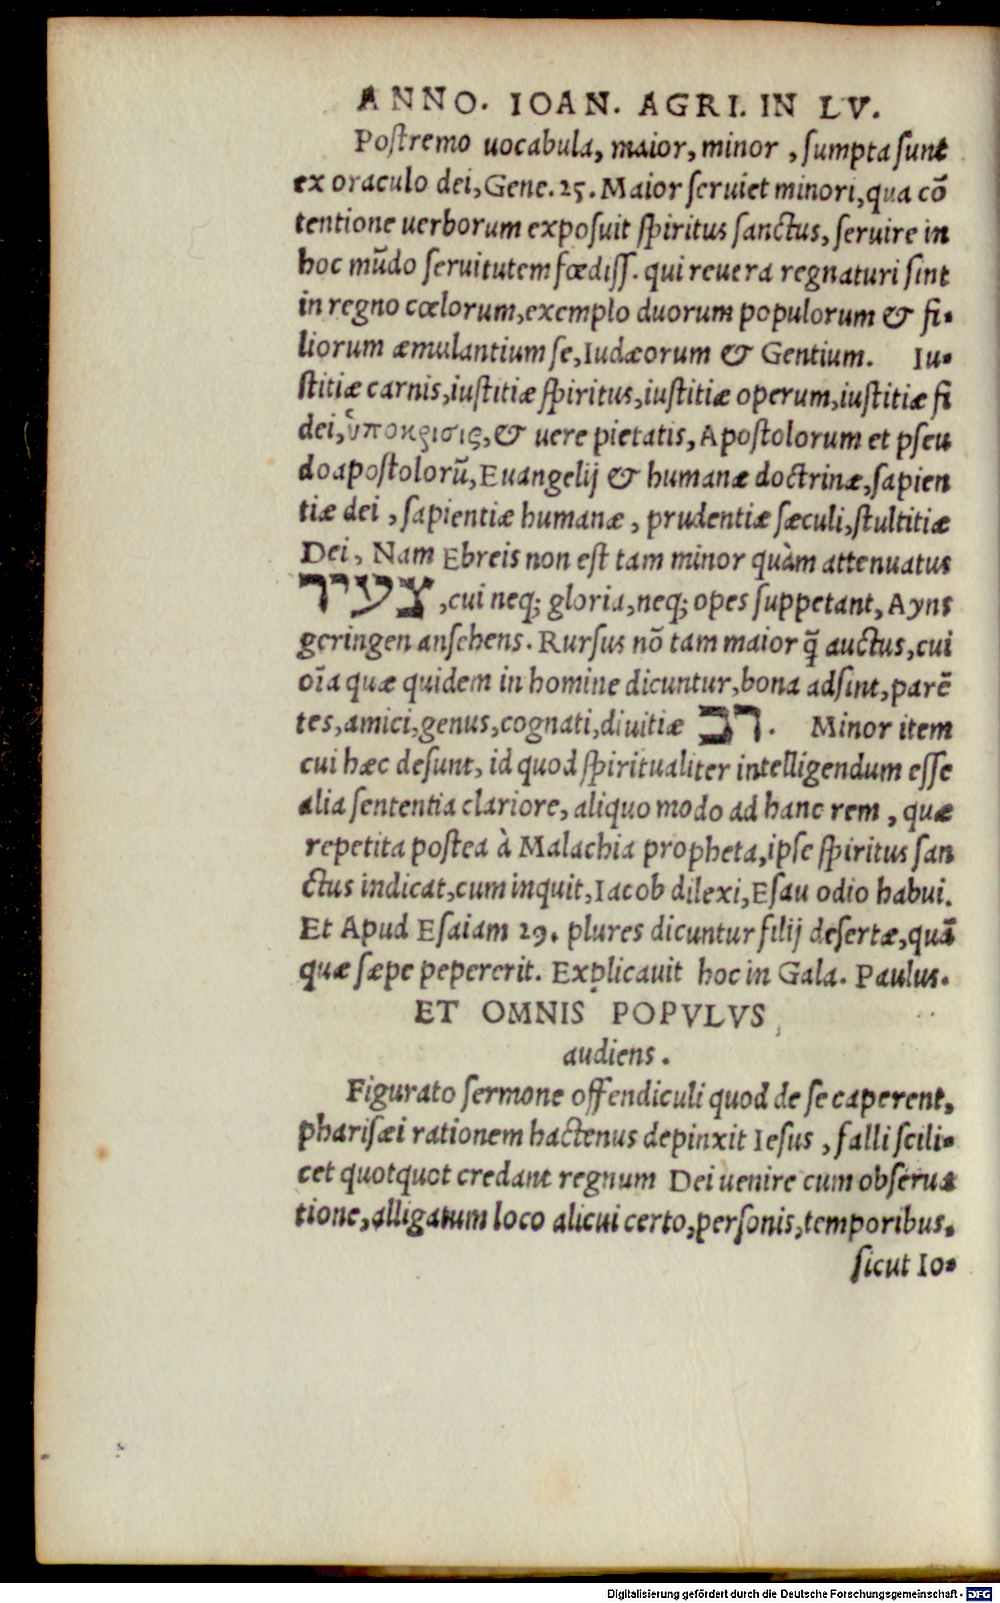 ANNO. IOAN. AGRI. IN LV.
Poſtremo uocabula, maior, minor , ſumpta ſunt
ex oraculo dei, Gene. 25. Maior ſeruiet minori, qua cõ
tentione uerborum expoſuit ſpiritus ſanctus, ſeruire in
hoc mũdo ſeruitutem fœdiſſ. qui reuera regnaturi ſint
in regno cœlorum, exemplo duorum populorum & fi-
liorum æmulantium ſe, Iudæorum & Gentium. Iu-
ſtitiæ carnis, iuſtitiæ ſpiritus, iuſtitiæ operum, iuſtitiæ fi
dei, ὑποκρισις, & uere pietatis, Apoſtolorum et pſeu
doapoſtolorũ, Euangelij & humanæ doctrinæ, ſapien
tiæ dei , ſapientiæ humanæ , prudentiæ ſæculi, ſtultitiæ
Dei, Nam Ebreis non eſt tam minor quàm attenuatus
צעיר , cui neq; gloria, neq; opes ſuppetant, Ayns
geringen anſehens. Rurſus nõ tam maior q̃ auctus, cui
oĩa quæ quidem in homine dicuntur, bona adſint, parẽ
tes, amici, genus, cognati, diuitiæ רב . Minor item
cui hæc deſunt, id quod ſpiritualiter intelligendum eſſe
alia ſententia clariore, aliquo modo ad hanc rem , quæ
repetita poſtea à Malachia propheta, ipſe ſpiritus ſan
ctus indicat, cum inquit, Iacob dilexi, Eſau odio habui.
Et Apud Eſaiam 29. plures dicuntur filij deſertæ, quã
quæ ſæpe pepererit. Explicauit hoc in Gala. Paulus.
ET OMNIS POPVLVS
audiens .
Figurato ſermone offendiculi quod de ſe caperent,
phariſæi rationem hactenus depinxit Ieſus , falli ſcili-
cet quotquot credant regnum Dei uenire cum obſerua
tione, alligatum loco alicui certo, perſonis, temporibus,
ſicut Io-
Digitalisierung gefördert durch die Deutsche Forschungsgemeinschaft - DFG